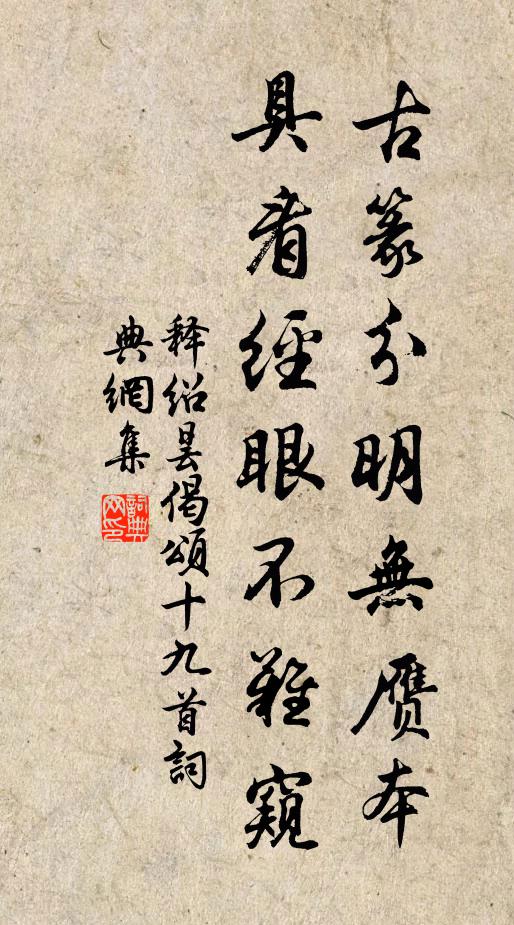 古篆分明無赝本
具看經眼不難窺
釋紹曇偈頌十九首詞
典網集
詞典网印